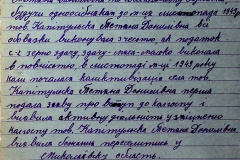 Будучи одноосібникам до м-ця листопада 194
тов. Капітульска Тетяна Данилівна всі
обов'язки виконувала з честю як податок
т-к зерно здачу, здачу-мяса-масла виконала
в повністью, в листопаді м-ці 1949 року
коли почалась колективізація села тов.
Капітульска Тетяна Данилівна перша
подала заяву про вступ до колгоспу і
виявила активну діяльність у зміцненню
колгоспу тов. Капітульска Тетяна Данилівна
виявила бажання переселитись у
Миколаївську область.